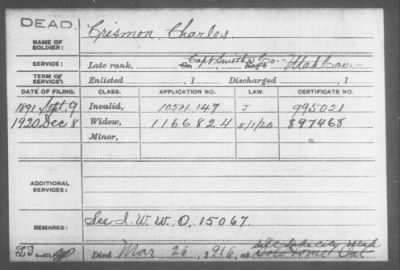 DEAD.
NAME OF SOLDIER: Crismon, Charles.
SERVICE: Late rank, Capt Smith's Co. Utah Cav.
TERM OF SERVICE: Enlisted , 1 Discharged , 1
DATE OF FILING. CLASS. APPLICATION NO. LAW. CERTIFICATE NO.
1891 Sept. 9 Invalid, 1054147 J 995021
1920 Dec 8 Widow, 1166824 5/1/20 897468
Minor,
ADDITIONAL SERVICES:
REMARKS: See I. W. W.O. 15067.
Died Mar 26, 1916, at